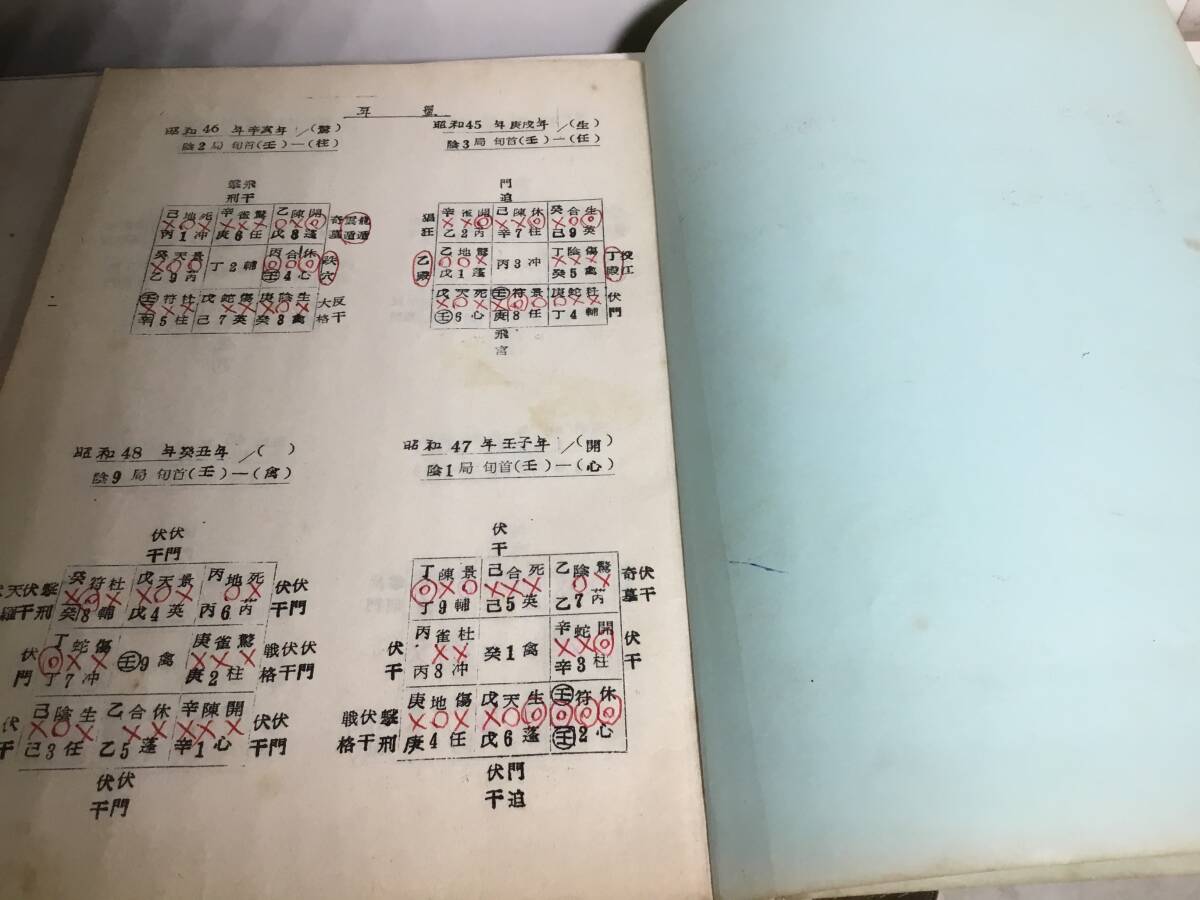 年盤
昭和45年庚戌年/(生)
陰3局旬首(壬)一(任)
門迫
辛雀開 己陳休 癸合生
乙2芮 辛7柱 己9英
乙地驚 丁陰傷
戊1蓬 丙3冲 癸5禽
戊天死 壬符景 庚蛇杜
壬6心 庚8任 丁4輔
猖狂
乙殿
丁殿
投江
伏門
飛宮
昭和46年辛亥年/(驚)
陰2局旬首(壬)一(柱)
撃刑 飛干
己地死 辛雀驚 乙陳開
丙1冲 庚6任 戊8蓬
癸天景 丙合休
乙9芮 丁2輔 壬4心
壬符杜 戊蛇傷 庚陰生
辛5柱 己7英 癸3禽
奇墓 雲遁 龍遁
跌穴
大格 反干
昭和47年壬子年/(開)
陰1局旬首(壬)一(心)
伏干
丁陳景 己合死 乙陰驚
丁9輔 己5英 乙7芮
丙雀杜 辛蛇開
丙8冲 癸1禽 辛3柱
庚地傷 戊天生 壬符休
庚4任 戊6蓬 壬2心
奇墓 伏干
伏干
伏干
戦格 伏干 撃刑
伏干 門迫
昭和48年癸丑年/( )
陰9局旬首(壬)一(禽)
伏干 伏門
癸符杜 戊天景 丙地死
癸8輔 戊4英 丙6芮
丁蛇傷 庚雀驚
丁7冲 壬9禽 庚2柱
己陰生 乙合休 辛陳開
己3任 乙5蓬 辛1心
伏 天羅 伏干 撃刑
伏干 伏門
伏門
戦格 伏干 伏門
伏干
伏干 伏門
伏干 伏門